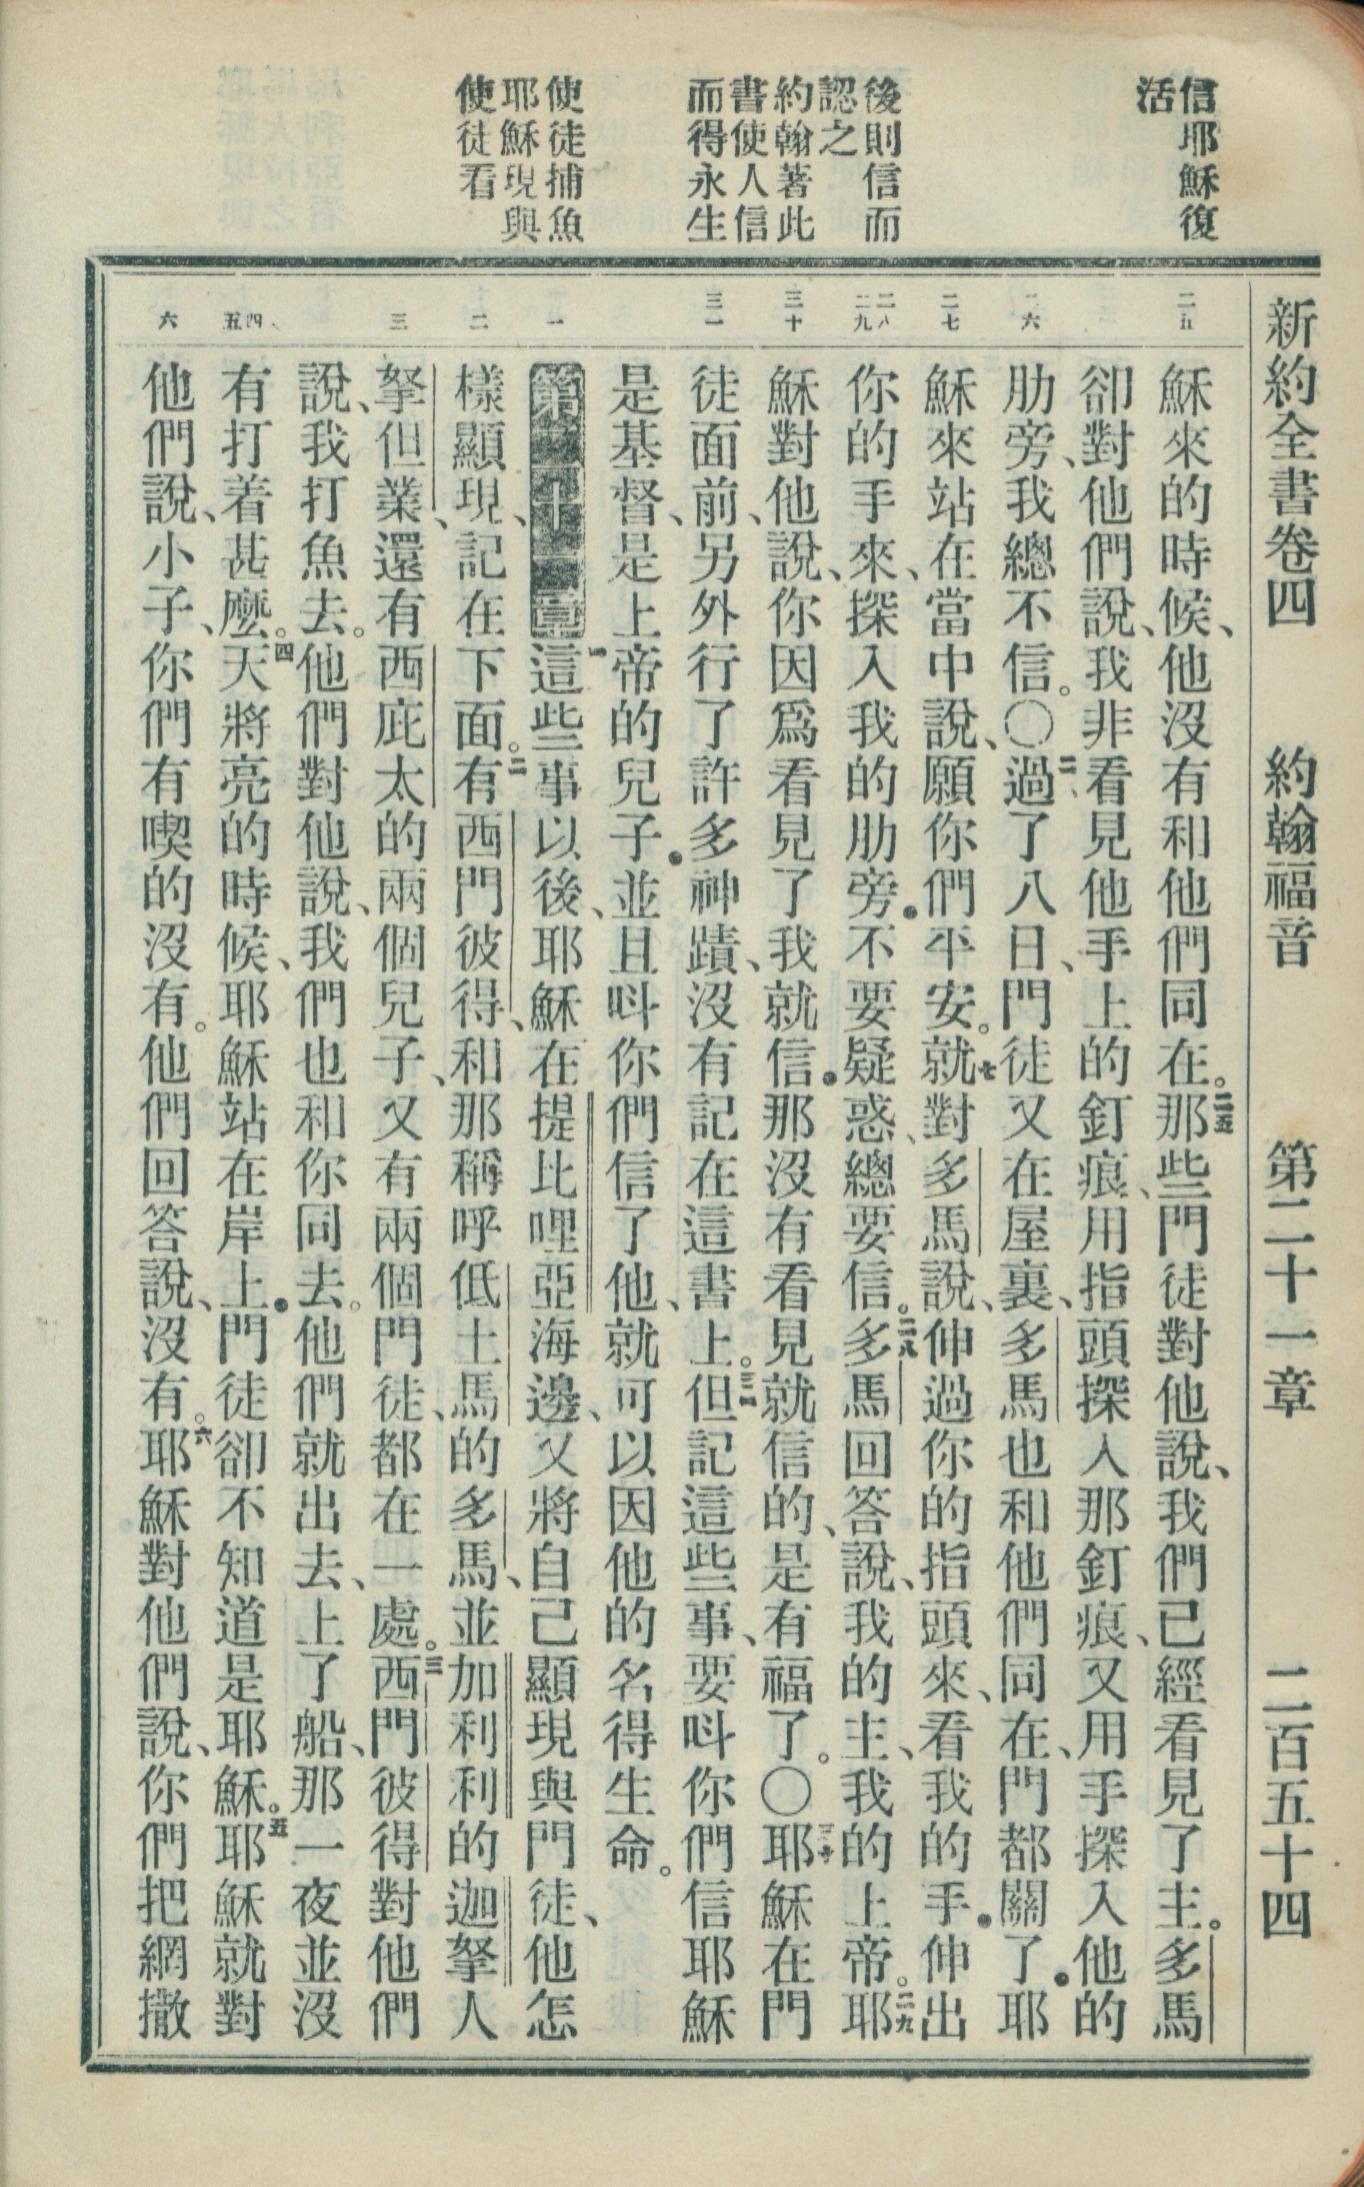 新約全書卷四　約翰福音　第二十一章　二百五十四
信耶穌復
活
後則信而
認之
約翰著此
書使人信
而得永生
使徒捕魚
耶穌現與
使徒看
二五
二六
二七
二八
二九
三十
三一
一
二
三
四
五
六
穌來的時候、他沒有和他們同在。二五那些門徒對他說、我們已經看見了主。多馬
卻對他們說、我非看見他手上的釘痕、用指頭探入那釘痕、又用手探入他的
肋旁、我總不信。〇二六過了八日、門徒又在屋裏、多馬也和他們同在、門都關了．耶
穌來站在當中說、願你們平安。二七就對多馬說、伸過你的指頭來、看我的手．伸出
你的手來、探入我的肋旁．不要疑惑、總要信。二八多馬回答說、我的主、我的上帝。二九耶
穌對他說、你因為看見了我就信．那沒有看見就信的、是有福了。〇三十耶穌在門
徒面前、另外行了許多神蹟、沒有記在這書上。三一但記這些事、要呌你們信耶穌
是基督、是上帝的兒子．並且呌你們信了他、就可以因他的名得生命。
第二十一章一這些事以後、耶穌在提比哩亞海邊、又將自己顯現與門徒、他怎
樣顯現、記在下面。二有西門彼得、和那稱呼低土馬的多馬、並加利利的迦拏人
拏但業、還有西庇太的兩個兒子、又有兩個門徒、都在一處。三西門彼得對他們
說、我打魚去。他們對他說、我們也和你同去。他們就出去、上了船、那一夜並沒
有打着甚麼。四天將亮的時候、耶穌站在岸上．門徒卻不知道是耶穌。五耶穌就對
他們說、小子、你們有喫的沒有。他們回答說、沒有。六耶穌對他們說、你們把網撒